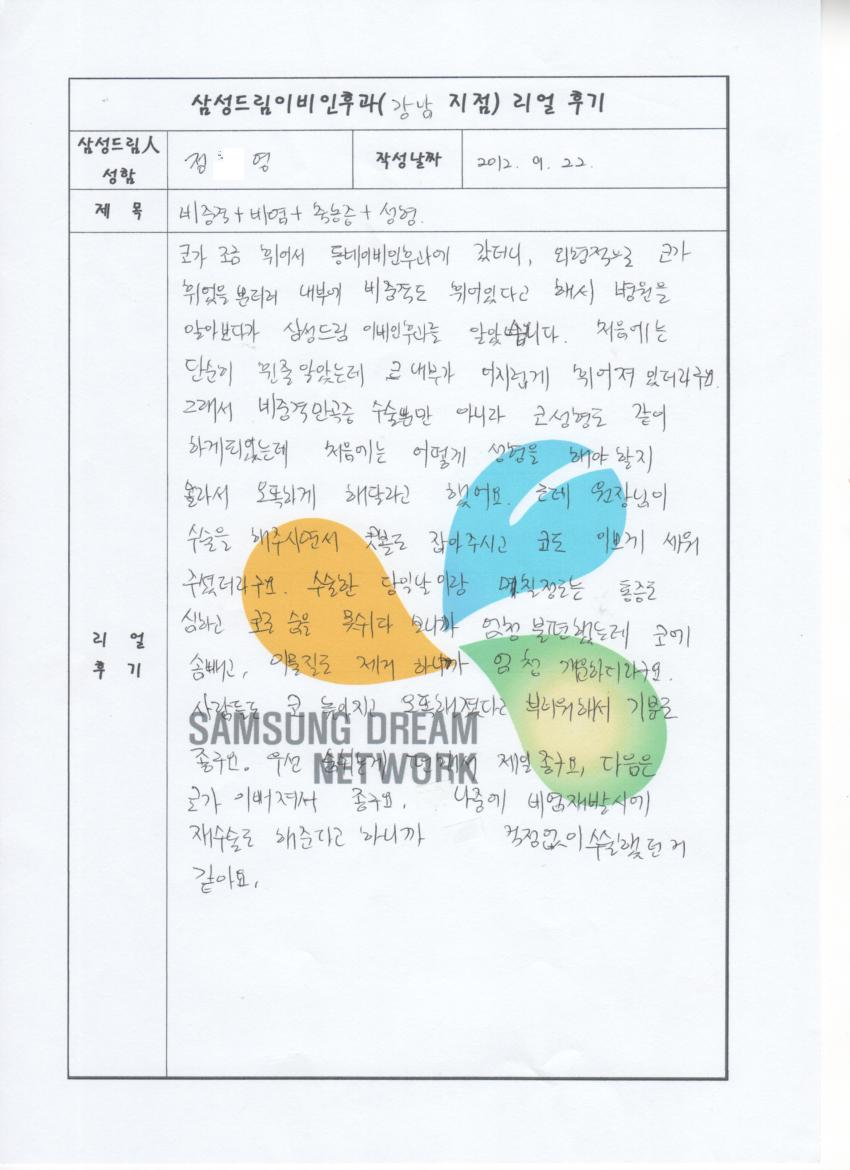 삼성드림이비인후과(강남 지점) 리얼 후기
삼성드림人 성함
정 영
작성날짜
2012. 9. 22.
제 목
비중격+비염+축농증+성형.
리 얼 후 기
코가 조금 휘어서 동네이비인후과에 갔더니, 외형적으로 코가
휘었을 뿐더러 내부에 비중격도 휘어있다고 해서 병원을
알아보다가 삼성드림 이비인후과를 알았습니다. 처음에는
단순히 휜줄 알았는데 코 내부가 어지럽게 휘어져 있더라구요.
그래서 비중격만곡증 수술뿐만 아니라 코성형도 같이
하게되었는데 처음에는 어떻게 성형을 해야 할지
몰라서 오똑하게 해달라고 했어요. 근데 원장님이
수술을 해주시면서 콧볼도 잡아주시고 코도 이쁘게 세워
주셨더라구요. 수술한 당일날이랑 며칠정도는 통증도
심하고 코로 숨을 못쉬다 보니까 엄청 불편했는데 코에
솜빼고, 이물질도 제거 하니까 엄청 개운하더라구요.
사람들도 코 높아지고 오똑해졌다고 부러워해서 기분도
좋구요. 우선 숨쉬는게 편해서 제일 좋구요, 다음은
코가 이뻐져서 좋구요. 나중에 비염재발시에
재수술도 해준다고 하니까 걱정없이 수술했던 거
같아요.
SAMSUNG DREAM
NETWORK